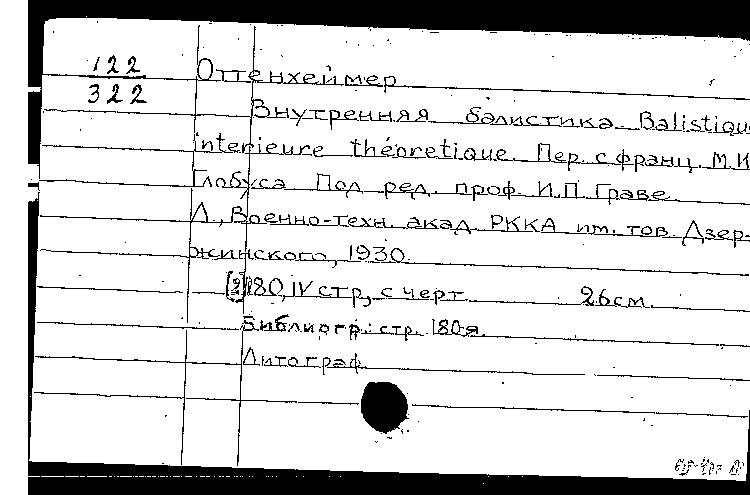 122
322
Оттенхеймер
Внутренняя балистика. Balistique
interieure théoretique. Пер. с франц. М.К.
Глобуса. Под ред. проф. И.П. Граве.
Л., Военно-техн. акад. РККА им. тов. Дзер-
жинского, 1930.
[2], 180, IV стр, с черт. 26см.
Библиогр.: стр. 180-я.
Литограф.